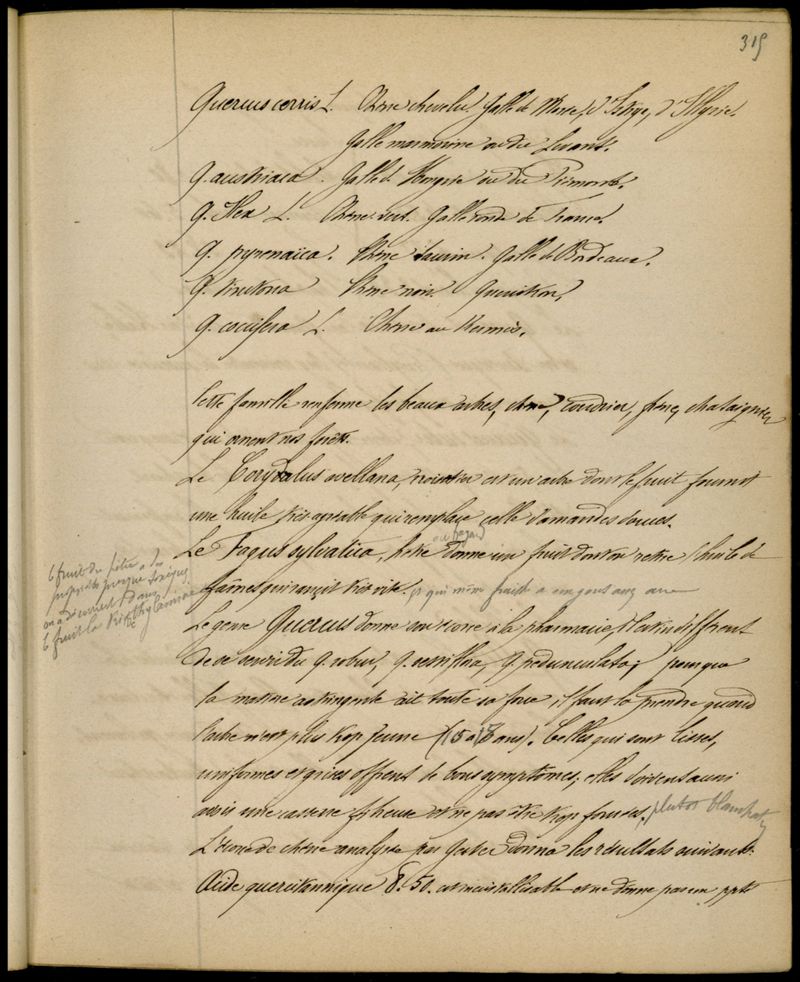 319
Quercus cerris L. Chêne chevelu. Galle de Morée, d'Istrie, d'Illyrie.
Galle marmorine ou du Levant.
Q. austriaca. Galle de Hongrie ou du Piémont.
Q. Ilex L. Chêne vert. Galle ronde de France.
Q. pyrenaïca. Chêne tauzin. Galle de Bordeaux.
Q. tinctoria Chêne noir. Quercitron.
Q. coccifera L. Chêne au Kermès.
Cette famille renferme les beaux arbres, chêne, coudrier, châtaignier
qui ornent nos forêts.
Le Corydalus avellana, noisetier est un arbre dont le fruit fournit
une huile très agréable qui remplace celle d'amandes douces.
Le Fagus sylvatica, hêtre donne un fruit dont on retire l'huile de
faînes qui rancit très vite. et qui même fraîche a un goût assez
Le fruit du hêtre a des
propriétés presque toxiques
on a découvert dans
le fruit la triméthylamine
Le genre Quercus donne son écorce à la pharmacie, il est indifférent
de se servir du Q. robur, Q. sessiflora, Q. pedunculata; pour que
la matière astringente ait toute sa force, il faut la prendre quand
l'arbre n'est plus trop jeune (15 à 18 ans). Celles qui sont lisses,
uniformes et grises offrent de bons symptômes; elles doivent aussi
avoir une cassure fibreuse et ne pas être trop foncées. plutôt blanchâtre
L'écorce de chêne analysée par Gerber donna les résultats suivants.
Acide quercitannique 8.50. est incristallisable et ne donne pas un ppté